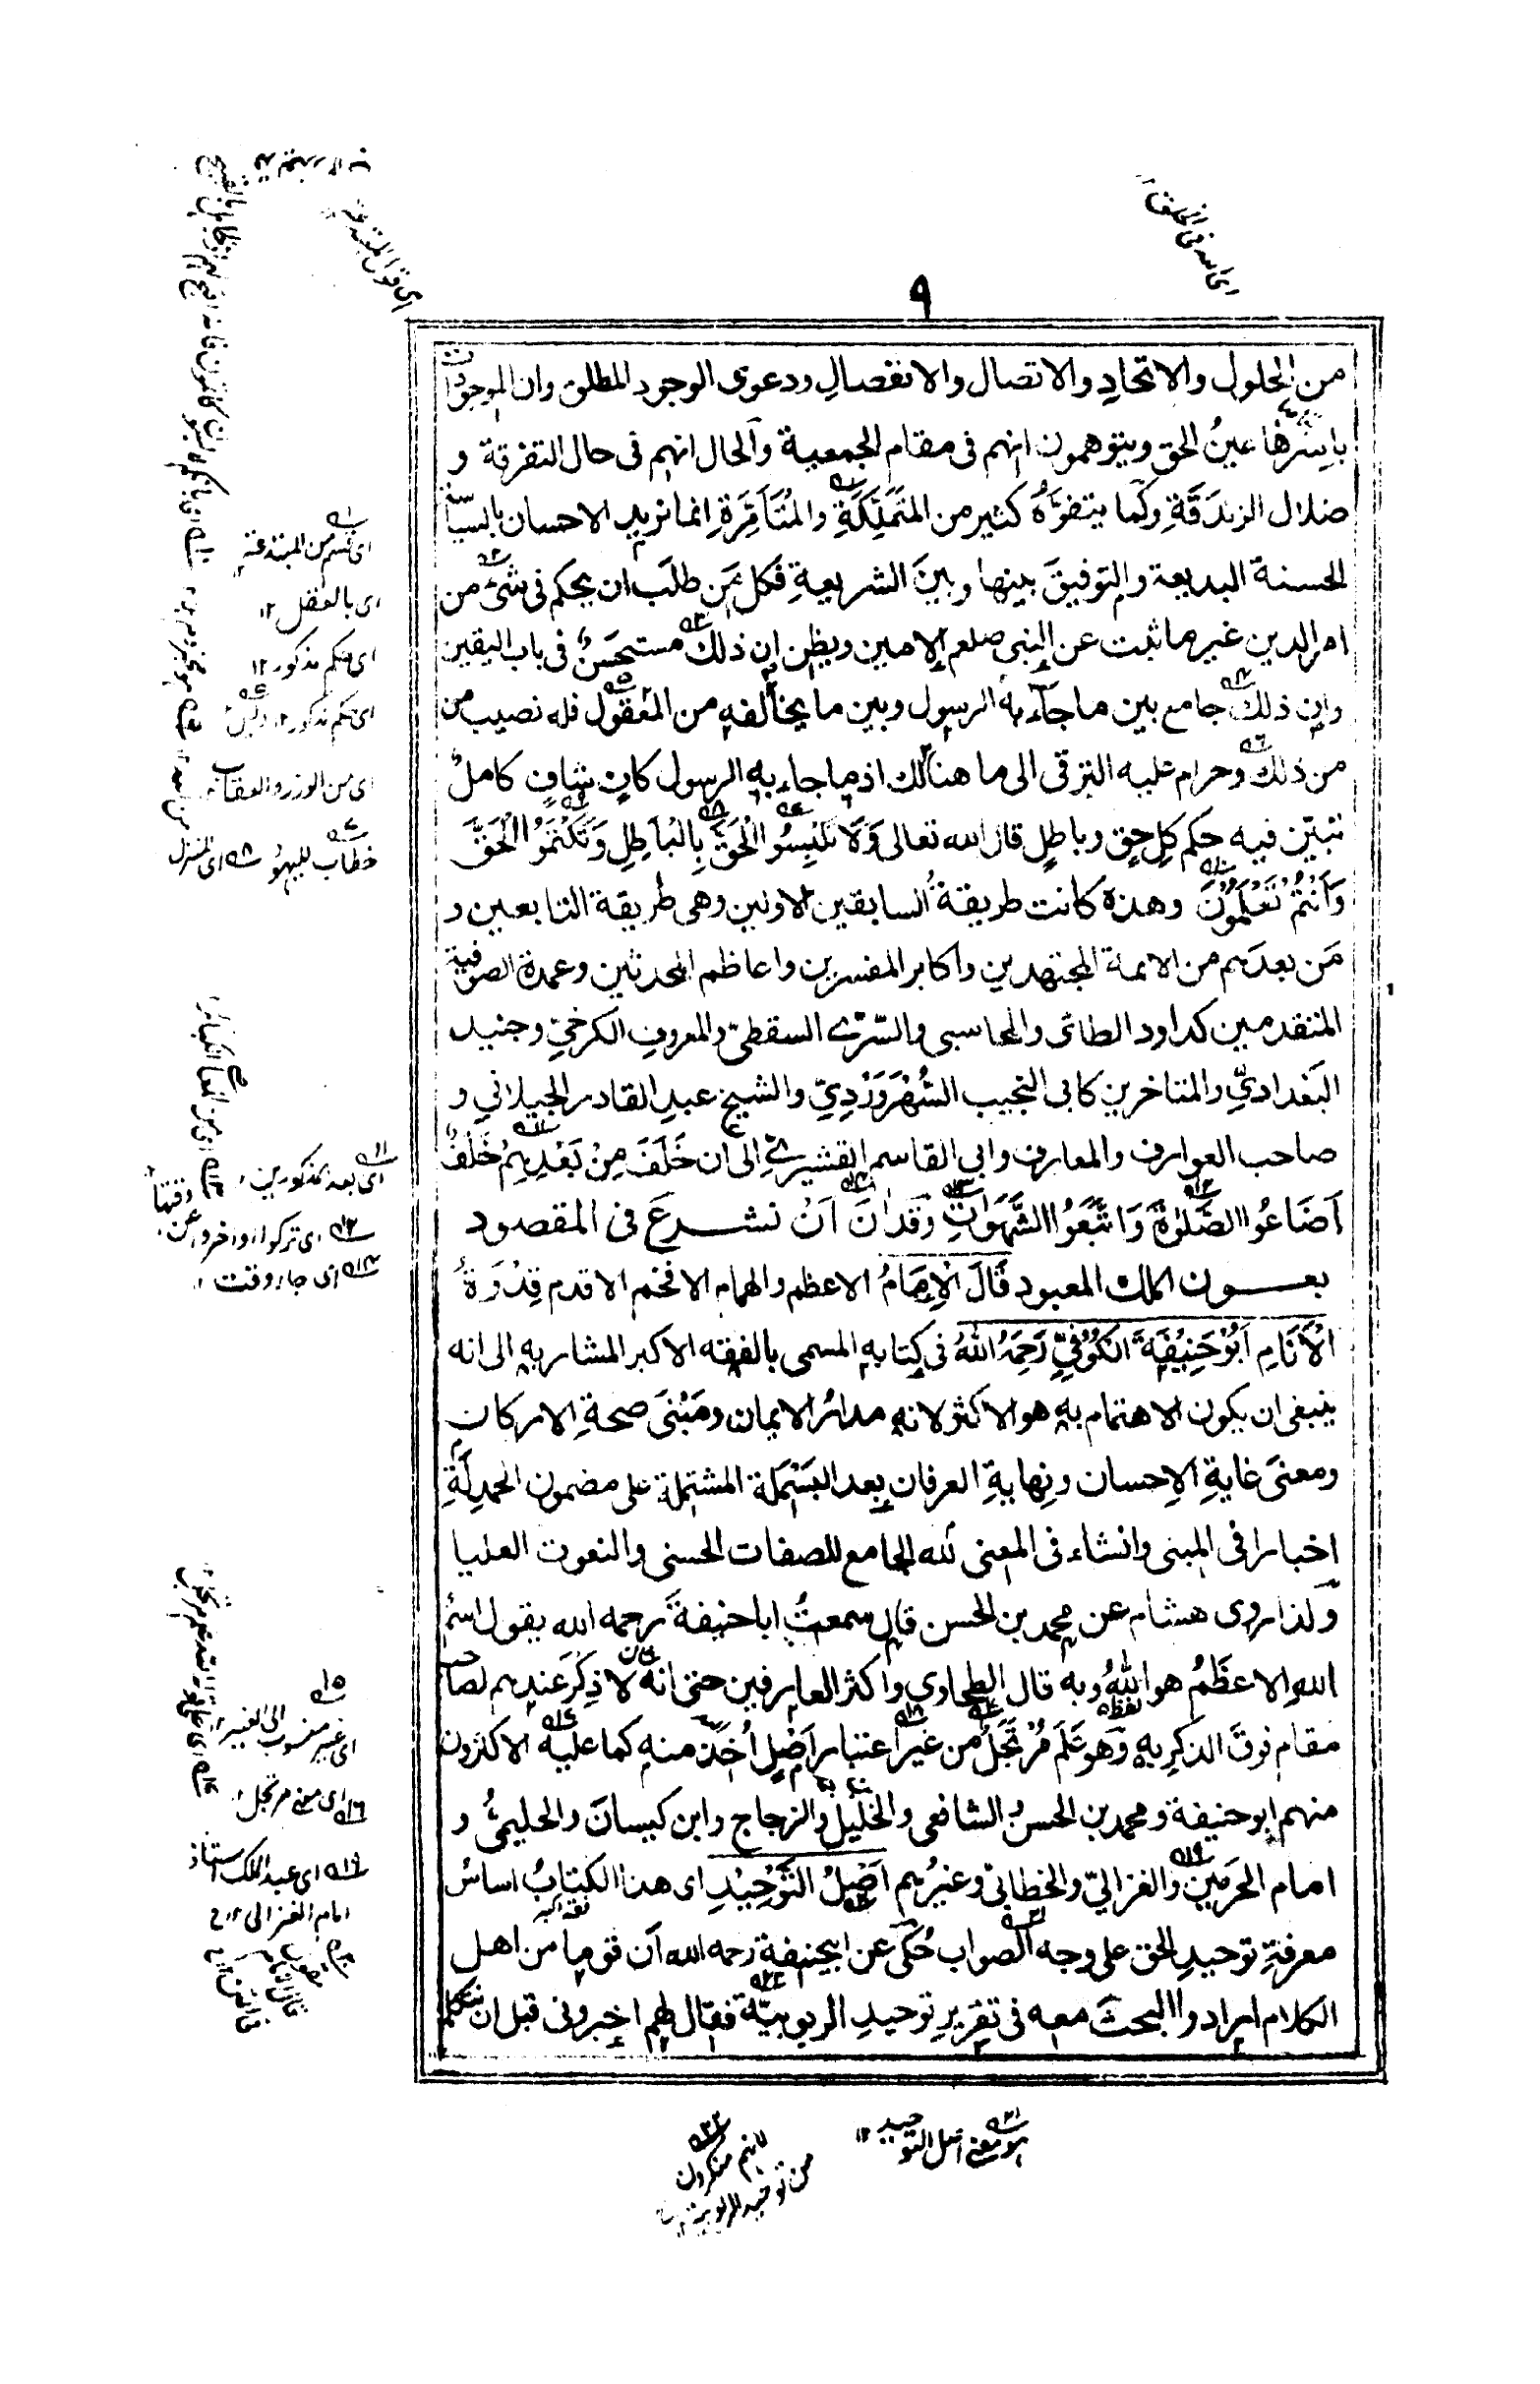 ٩
من الحلول والاتحادِ والاتصال والانفصالِ ودعوى الوجود المطلق وان الموجودات
باسرها عينُ الحق ويتوهمون انهم فى مقام الجمعية والحال انهم فى حال التفرقة و
ضلال الزندقةِ وكما يتفوّهُ كثير من المتملكةِ والمتأمِّرةِ انما نريد الاحسان بالسياسة
الحسنة البديعة والتوفيقَ بينها وبينَ الشريعةِ فكل مَن طلَب ان يحكم فى شئ من
امر الدين غير ما ثبت عن النبى صلعم الامين ويظن ان ذلك مستحسَنٌ فى باب اليقين
وان ذلك جامع بين ما جاء به الرسول وبين ما يخالفه من المعقول فله نصيب من
من ذلك وحرام عليه الترقى الى ما هنالك اذ ما جاء به الرسول كافٍ شافٍ كاملٌ
تبيّن فيه حكم كلِ حقٍ وباطلٍ قال الله تعالى وَلَا تَلْبِسُوا الْحَقَّ بِالْبَاطِلِ وَتَكْتُمُوا الْحَقَّ
وَاَنْتُمْ تَعْلَمُوْنَ وهذه كانت طريقةُ السابقين الاولين وهى طريقة التابعين و
مَن بعدَهم من الائمة المجتهدين واكابر المفسرين واعاظم المحدثين وعمدة الصوفية
المتقدمين كداود الطائى والمحاسبى والسّرّى السقطىّ والمعروفِ الكرخىِّ وجنيد
البغدادىِّ والمتاخرين كابى النجيب السُّهْرَوَرْدِىّ والشيخ عبدِ القادر الجيلاني و
صاحب العوارف والمعارف وابي القاسم القشيرىّ الى ان خَلَفَ مِنْ بَعْدِهِمْ خَلْفٌ
اَضَاعُوا الصَّلٰوةَ وَاتَّبَعُوا الشَّهَوَاتِ وَقَد اٰنَ اَنْ نشرعَ فى المقصود
بعون الملك المعبود قَالَ الْاِمَامُ الاعظم والهمام الافخم الاقدم قِدْوَةُ
الْاَنَامِ اَبُوْ حَنِيْفَةَ الْكُوْفِيِّ رَحِمَهُ اللهُ فى كتابه المسمى بالفقه الاكبر المشار به الى انه
ينبغى ان يكون الاهتمام به هو الاكثر لانه مدارُ الايمان ومَبْنَى صحةِ الاركان
ومعنىَ غايةِ الاحسان ونهايةِ العرفان بعد البَسْمَلَة المشتملة على مضمون الحمدلَةِ
اخبارا فى المبنى وانشاء فى المعنى لله الجامع للصفات الحسنى والنعوت العليا
ولذا روى هشام عن محمد بن الحسن قال سمعتُ اباحنيفةَ رحمه الله يقول اسمُ
اللهِ الاعظَمُ هو اللهُ وبه قال الطحاوي واكثر العارفين حتى انه لا ذِكْرَ عندهم لصاحب
مقام فوقَ الذكرِ به وهو عَلَم مُرْتَجَلٌ من غير اعتبار اَصْلٍ اُخِذَ منه كما عليه الاكثرون
منهم ابوحنيفة ومحمد بن الحسن والشافعى والخليل والزجاج وابن كيسانَ والحليمىُّ و
امام الحرمَين والغزالىّ والخطابىّ وغيرُهم اَصْلُ التَّوْحِيْدِ اى هذا الكتابُ اساسُ
معرفةِ توحيدِ الحق على وجه الصواب حُكىَ عن ابيحنيفة رحمه الله اَن قوما من اهل
الكلام ارادوا البحثَ معه فى تقريرِ توحيدِ الربوبيّة فقال لهم اخبرونى قبل ان نتكلم
اى قسم من المبتدعة
اى بالعقل ١٢
اى حكم مذكور ١٢
اى من الوزر والعقاب
خطاب لليهود
اى المنزل
اى بعد المذكورين
اى تركوا او اخروا عن وقتها
اى جاء وقت
اى غير منسوب الى الغير
اى معنى مرتجل
اى عبد الملك استاذ
امام الغزالى ١٢
هو معنى اصل التوحيد ١٢
لانهم منكرون
من توحيد الربوبية